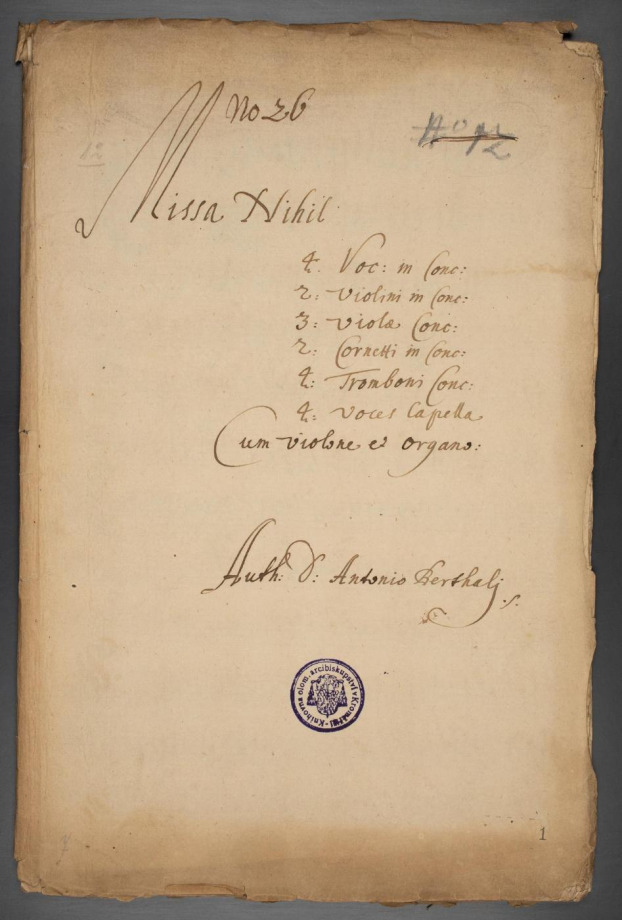 No 26
No 12
12
Missa Nihil
4. Voc: in Conc:
2: Violini in Conc:
3: Violæ Conc:
2: Cornetti in Conc:
4: Tromboni Conc:
4: voces Capella
Cum violone et organo:
Auth: D: Antonio Berthalj
Knihovna olom. arcibiskupství v Kroměříži
1